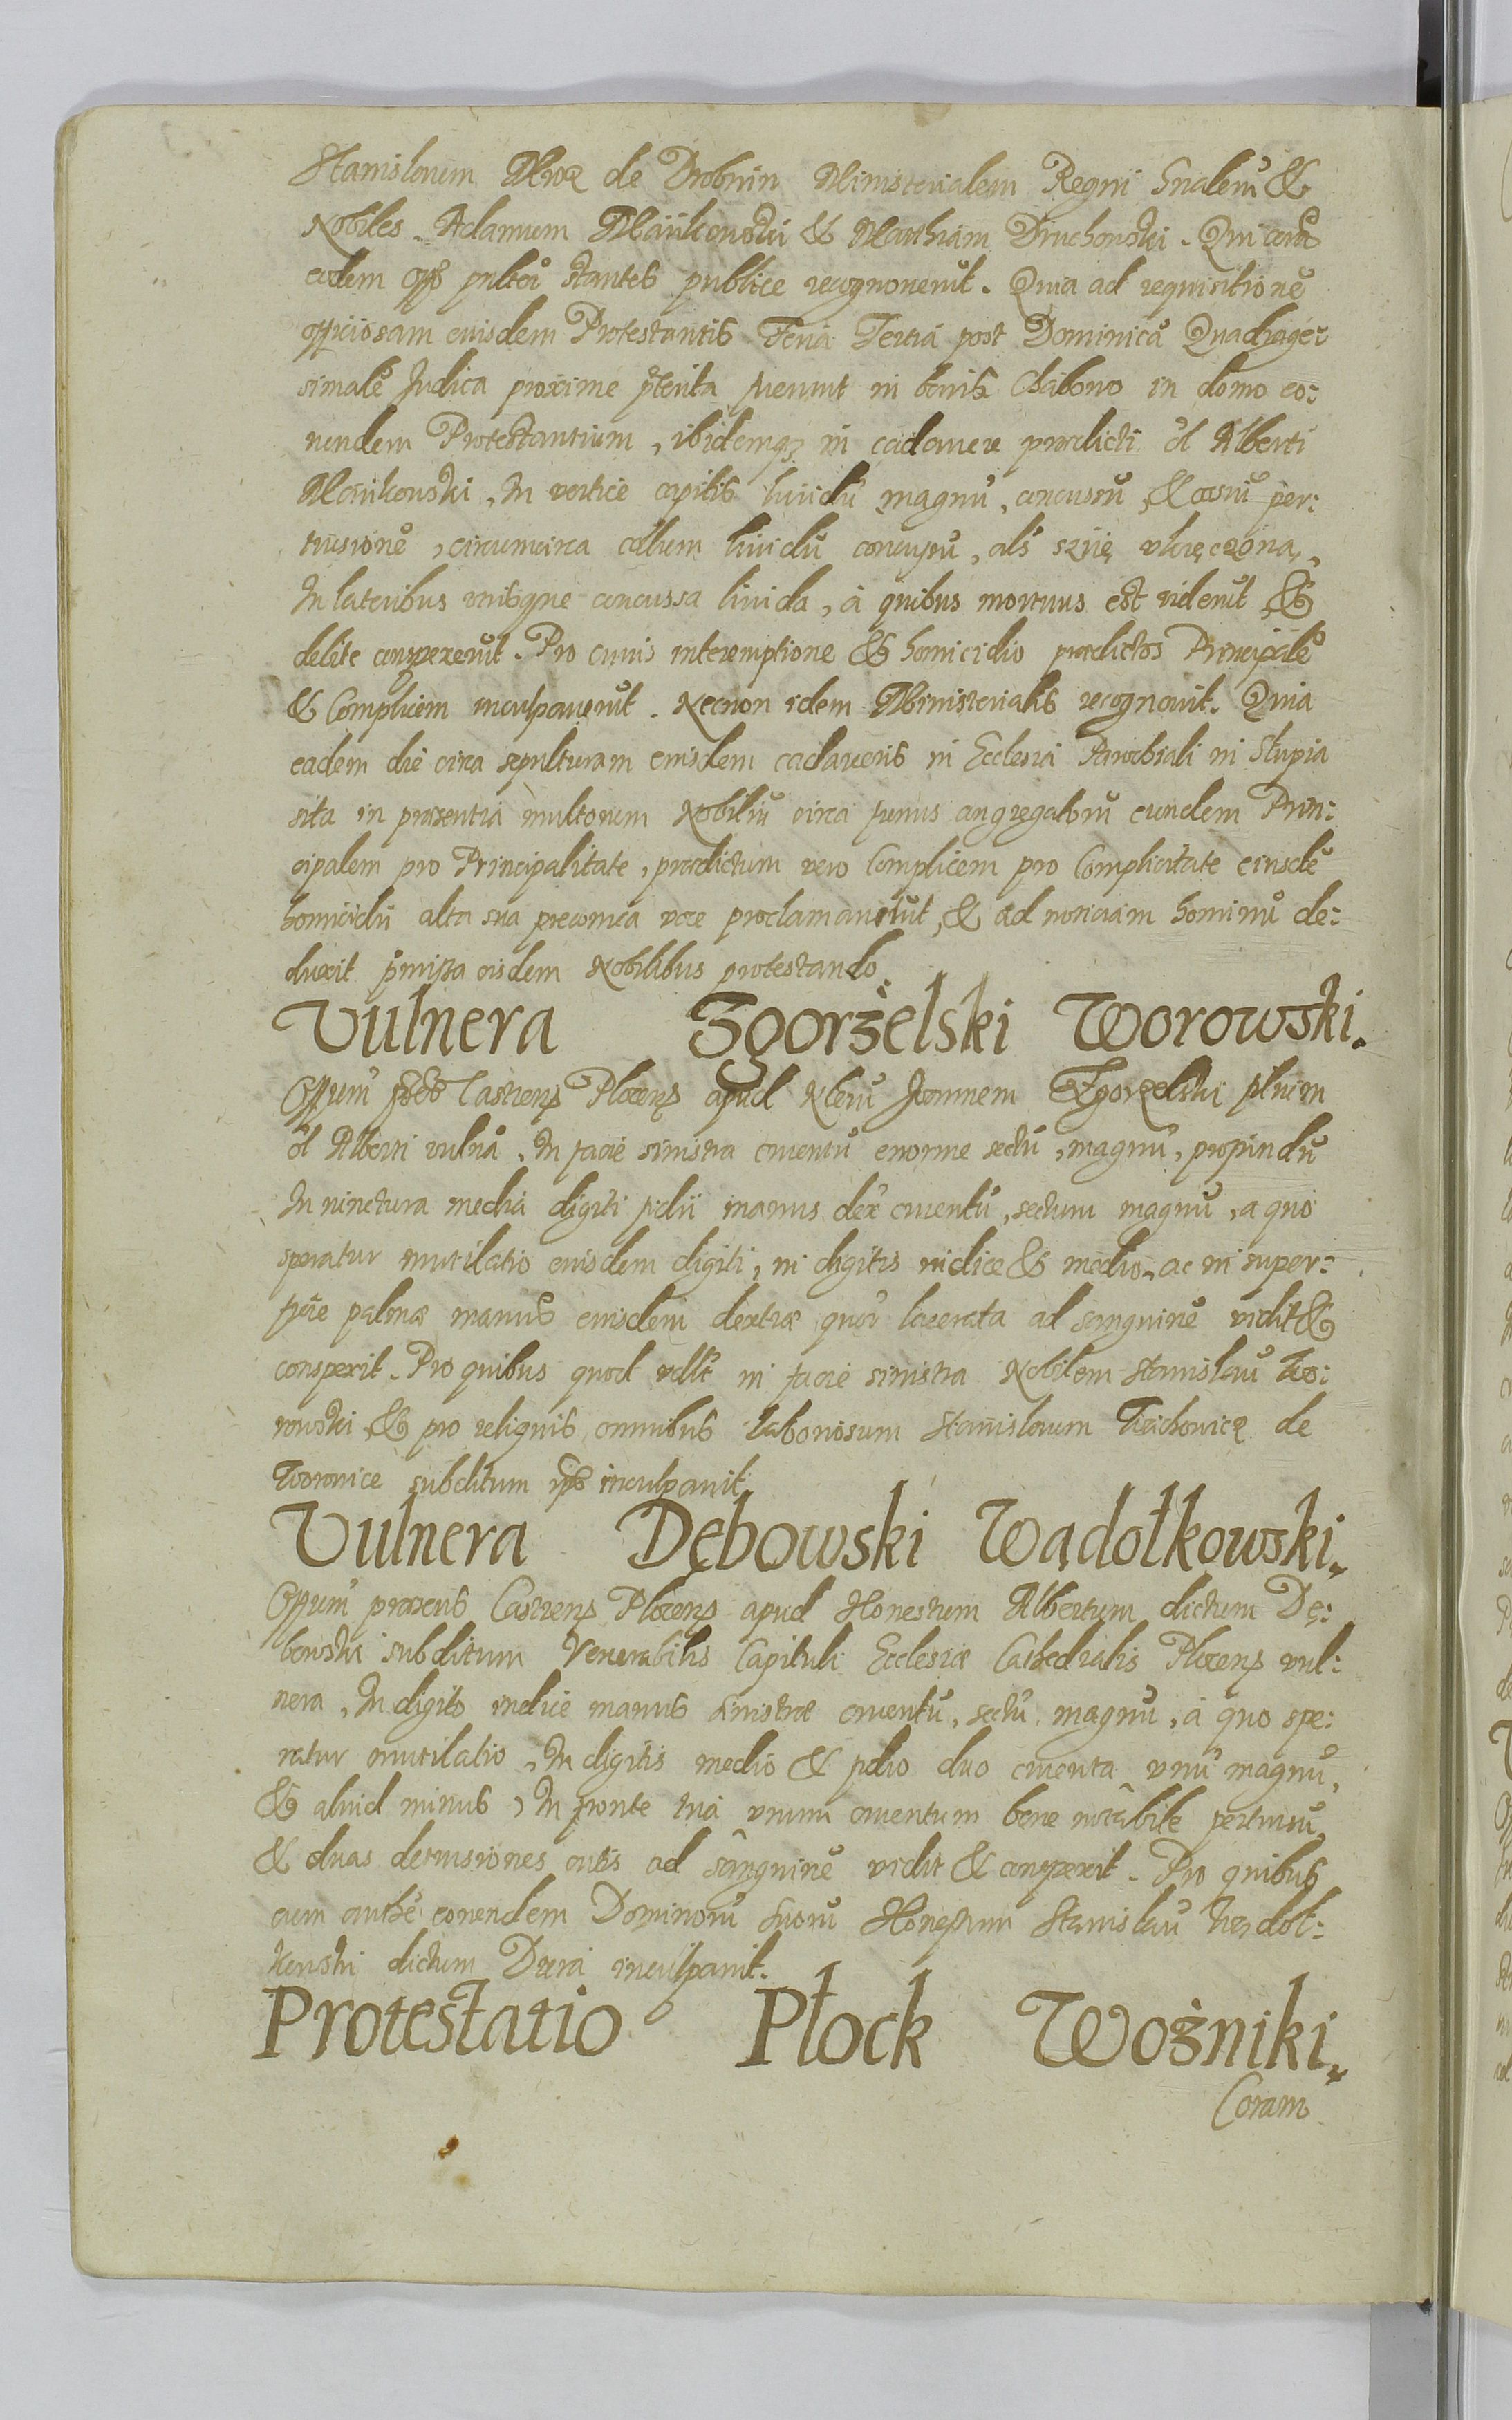 Stanislaum Mroz de Drobnin Ministerialem Regni Gnalem &
Nobiles Adamum Mańkowski & Matthiam Druchowski. Qui coram
eodem Offo stantes publice recognoverut. Quia ad requisitionē
officiosam eiusdem Protestantis Feria Tertia post Dominicā Quadrage:
simalē Judica proxime pterita fuerunt in bonis in domo eo:
rundem Protestantium, ibidemq3 in cadavere praedicti ol Alberti
Mańkowski, In vertice capitis lividū magnū, concussū & per:
tusionē, circumcirca collum lividū concussū, als szyię
In lateribus utrisque concussa livida, à quibus mortuus est viderūt &
conspexerūt. Pro cuius interemptione & homicidio praedictos Principalē
& Complicem inculpaverūt. Necnon idem Ministerialis recognovit. Quia
eadem die circa sepulturam eiusdem cadaveris in Ecclesia Parochiali in Slupia
sita in praesentia multorum Nobiliū circa funus congregatorū eundem Prin:
cipalem pro Principalitate, praedictum vero Complicem pro Complicitate eiusdē
homicidii alta sua preconica voce proclamavit, & ad noticiam hominū de:
duxit pmissa eisdem Nobilibus protestando.
Vulnera Zgorżelski Worowski.
Offum Castrens Plocens apud Nbem Joannem Zgorzelski filium
ol Alberti vulnā, In facie sinistra cruentū enorme sectū, magnū,
In iunctura media digiti manus dex cruentū, sectum magnū, a quo
speratur mutilatio eiusdem digiti, in digitis indice & medio, ac in super:
ficie palmae manus eiusdem dextrae lacerata ad sanguinē vidit &
conspexit. Pro quibus quod in facie sinistra Nobilem Stanislaū Wo:
rowski, & pro reliquis omnibus laboriosum Stanislaum de
Worowice subditum inculpavit.
Vulnera Dębowski Wadołkowski.
Offum praesens Castrens Plocens apud Honestum Albertum dictum Dę:
bowski subditum Venerabilis Capituli Ecclesiae Cathedralis Plocens vul:
nera, In digito indice manus sinistrae cruentū, sectū, magnū, à quo spe:
ratur mutilatio, In digitis medio & duo cruenta unū magnū,
& aliud minus, In fronte unum cruentum bene notabile pertusū,
& duas detrusiones cutis ad sanguinē vidit & conspexit. Pro quibus
cum eorundem Dominorū suorū Honestum Stanislaū Wadoł:
kowski dictum inculpavit.
Protestatio Płock Wożniki.
Coram